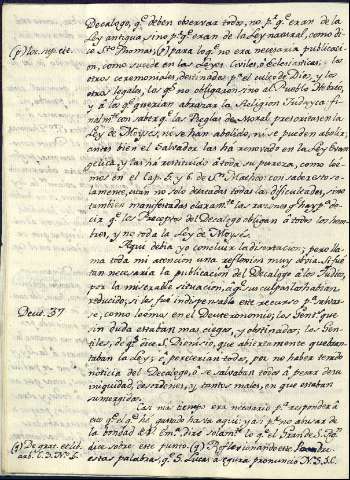 Decalogo, q.e deben observar todos, no p.r q.e eran de la
Ley antigua, sino p.r q.e eran de la Ley natural, como di-
(p) loc. sup. cit.
ce S.to Thomas, (p) para lo q.e no era necesaria publicaci-
on, como sucede en las Leyes Civiles, ô Eclesiasticas; las
otras ceremoniales, destinadas p.a el culto de Dios, y las
otras legales, las q.e no obligaron sino al Pueblo Hebreo,
y â los q.e querian abrazar la Religion Judayca: fi-
nalm.te con saber q.e las Reglas de Moral, prescritas en la
Ley de Moyses, ni se han abolido, ni se pueden abolir,
antes bien el Salvador las hâ renovado en la Ley Evan-
gelica, y las hâ restituido â toda su pureza, como lee-
mos en el Cap. 5. y 6. de S.n Matheo: con saber esto so-
lamente, estan no solo desatadas todas las dificultades, sino
tambien manifestadas claram.te las razones q.e hay p.a de-
cir q.e los Preceptos del Decalogo obligan â todos los hom-
bres, y no toda la Ley de Moyses.
Aqui debia yo concluir la disertacion; pero lla-
ma toda mi atencion una reflexion muy obvia. Si fue
tan necesaria la publicacion del Decalogo â los Judios,
por la miserable situacion, â q.e sus culpas los habian
reducido; si les fue indispensable este recurso p.a salvar-
Deut. 37
se, como leemos en el Deuteronomio; los Gent.s q.e
sin duda estaban mas ciegos, y obstinados; los Gen-
tiles, de q.e dice S. Dionisio, que abiertamente quebran-
taban la Ley; ô perecerian todos, por no haber tenido
noticia del Decalogo, ô se salvaban todos â pesar de su
iniquidad, desordenes, y tantos males, en que estaban
sumergidos.
Casi mas tiempo era necesario p.a responder â
esto q.e el q.e hé gastado hasta aqui; y asi p.r no abusar de
la bondad de V. Em.a diré solam.te lo q.e el Grande S.
(q) De grat. et lib.
arb. C. 3. N.o 5.
dice sobre este punto. (q) Reflexionando este
estas palabras, q.e S. Lucas asegura pronunció N. S. J. C.